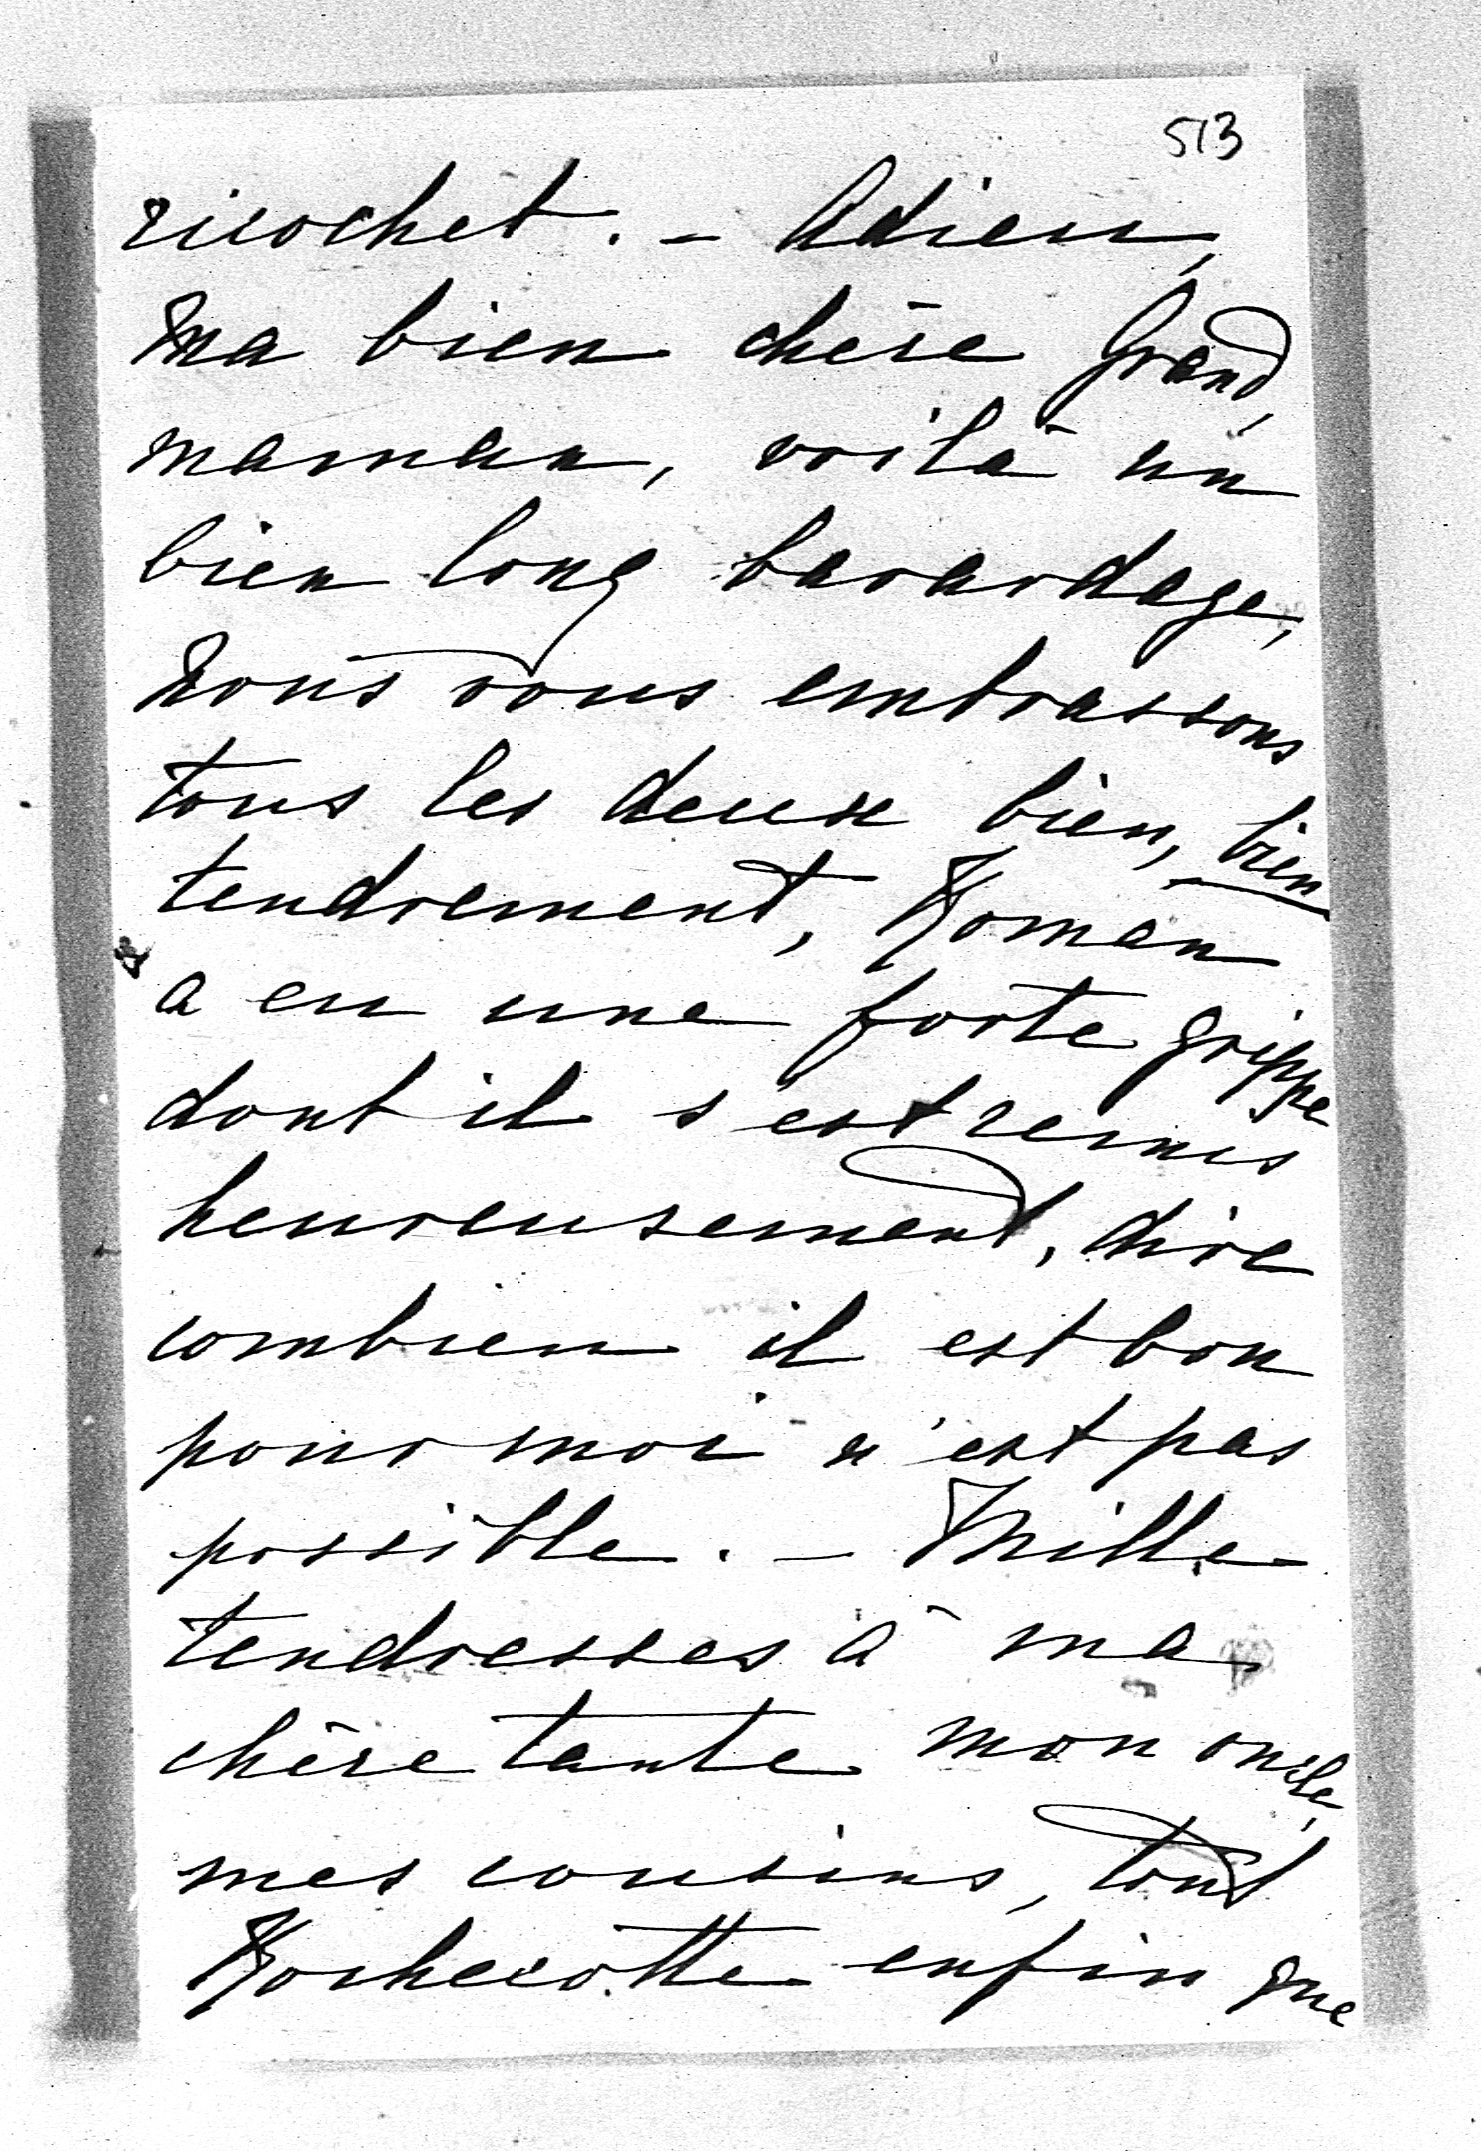 513
ricochet. - Adieu,
ma bien chère Grand,
maman, voilà un
bien long bavardage,
nous vous embrassons
tous les deux bien, bien
tendrement, Roman
a eu une forte grippe
dont il s'est remis
heureusement, dire
combien il est bon
pour moi n'est pas
possible. - Mille
tendresses à ma
chère tante mon oncle,
mes cousins, tout
Rochecotte enfin que